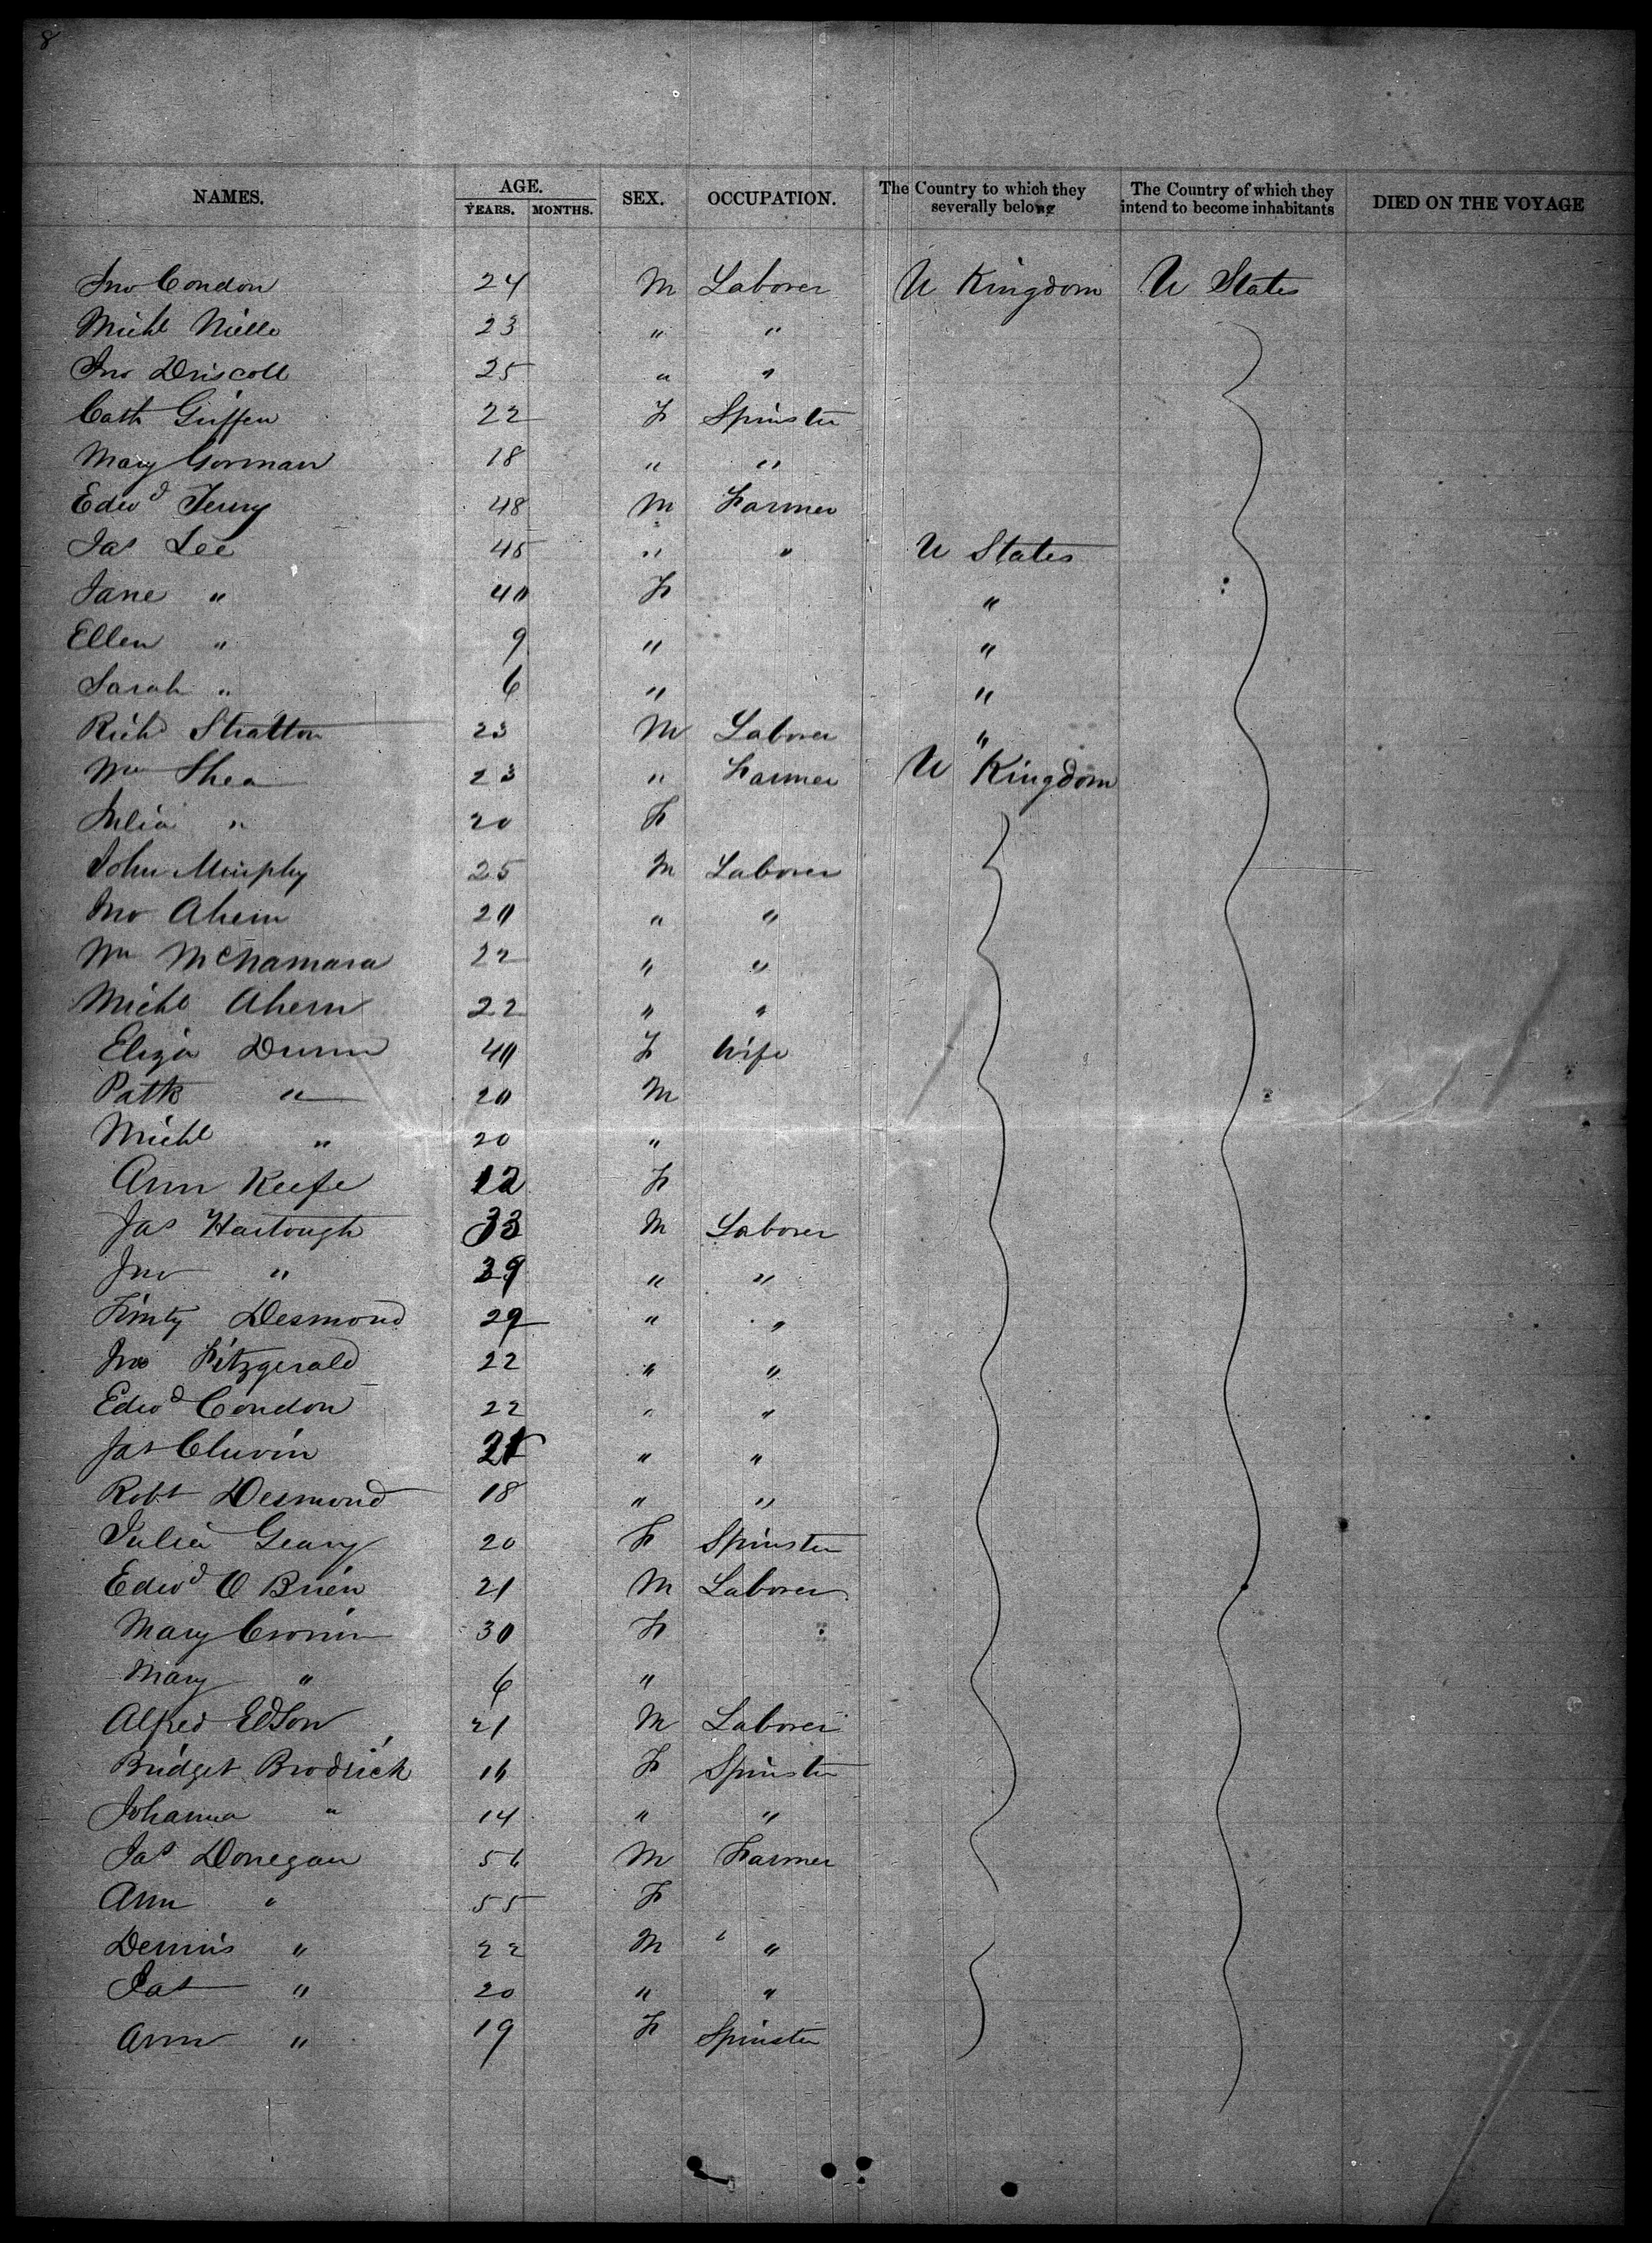 8
NAMES. AGE. YEARS. MONTHS. SEX. OCCUPATION. The Country to which they severally belong The Country of which they intend to become inhabitants DIED ON THE VOYAGE
Jno Condon 24 M Laborer U Kingdom U States
Michl Nielle 23 " "
Jno Driscoll 25 " "
Cath Griffen 22 F Spinster
Mary Gorman 18 " "
Edwd Terry 48 M Farmer
Jas Lee 45 " " U States
Jane " 40 F "
Ellen " 9 " "
Sarah " 6 " "
Richd Stratton 23 M Laborer "
Wm Shea 23 " Farmer U Kingdom
Julia " 20 F
John Murphy 25 M Laborer
Jno Ahern 20 " "
Wm McNamara 22 " "
Michl Ahern 22 " "
Eliza Dunn 40 F Wife
Patk " 20 M
Michl " 20 "
Ann Keefe 12 F
Jas Hartough 33 M Laborer
Jno " 39 " "
Timty Desmond 29 " "
Jno Fitzgerald 22 " "
Edwd Condon 22 " "
Jas " "
Robt Desmond 18 " "
Julia Geary 20 F Spinster
Edwd O Brien 21 M Laborer
Mary Cronin 30 F
Mary " 6 "
Alfred Edson 21 M Laborer
Bridget Brodrick 16 F Spinster
Johanna " 14 " "
Jas Donegan 56 M Farmer
Ann " 55 F
Dennis " 22 M " "
Pat " 20 " "
Ann " 19 F Spinster